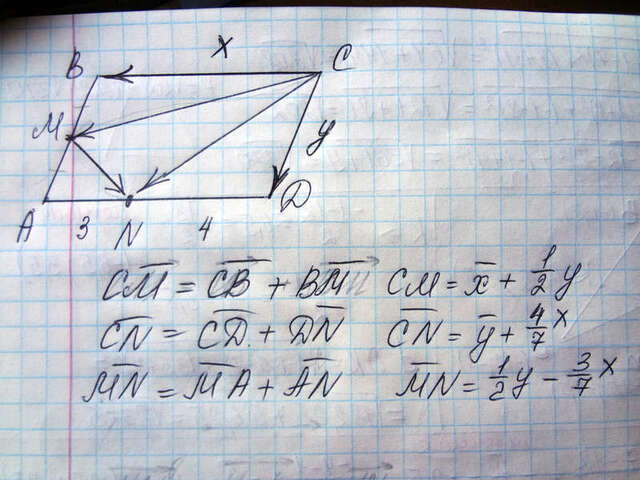 x
B C
M y
A 3 N 4 D
C̅M̅ = C̅B̅ + B̅M̅ CM = x̅ + 1/2 y
C̅N̅ = C̅D̅ + D̅N̅ C̅N̅ = y̅ + 4/7 x
M̅N̅ = M̅A̅ + A̅N̅ M̅N̅ = 1/2 y − 3/7 x